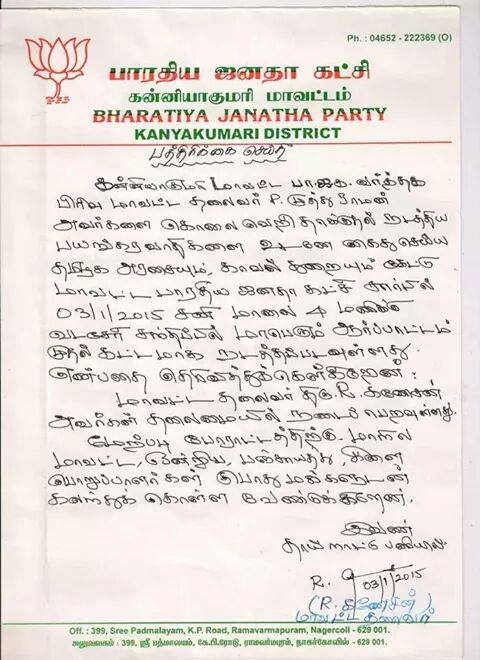 Ph. : 04652 - 222369 (O)
பாரதிய ஜனதா கட்சி
கன்னியாகுமரி மாவட்டம்
BHARATIYA JANATHA PARTY
KANYAKUMARI DISTRICT
பத்திரிக்கை செய்தி
கன்னியாகுமரி மாவட்ட பா.ஜ.க. வர்த்தக
பிரிவு மாவட்ட தலைவர் P. முத்துராமன்
அவர்களை கொலை வெறி தாக்குதல் நடத்திய
பயங்கரவாதிகளை உடனே கைது செய்ய
தமிழக அரசையும், காவல் துறையும் கேட்டு
மாவட்ட பாரதிய ஜனதா கட்சி சார்பில்
03/1/2015 சனி மாலை 4 மணிக்கு
வடசேரி சந்திப்பில் மாபெரும் ஆர்ப்பாட்டம்
முதல் கட்டமாக நடத்தப்படவுள்ளது
என்பதை தெரிவித்துக்கொள்கிறேன்.
மாவட்ட தலைவர் திரு. R. கணேசன்
அவர்கள் தலைமையில் நடைபெறவுள்ளது.
மேற்படி போராட்டத்திற்கு மாநில
மாவட்ட, ஒன்றிய, பஞ்சாயத்து, கிளை
பொறுப்பாளர்கள் பொது மக்களுடன்
கலந்துக் கொள்ள வேண்டுகிறேன்.
இவண்
தாய்நாட்டு பணியில்
R. 03/1/2015
(R. கணேசன்)
மாவட்ட தலைவர்
Off. : 399, Sree Padmalayam, K.P. Road, Ramavarmapuram, Nagercoil - 629 001.
அலுவலகம் : 399, ஸ்ரீ பத்மாலயம், கே.பி.ரோடு, ராமவர்மபுரம், நாகர்கோவில் - 629 001.